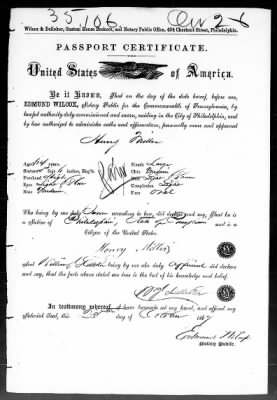 35,106
Oct 26
Wilcox & Bellisker, Custom House Brokers, and Notary Public Office, 404 Chestnut Street, Philadelphia.
PASSPORT CERTIFICATE.
United States of America.
Be it Known, That on the day of the date hereof, before me,
EDMUND WILCOX, Notary Public for the Commonwealth of Pennsylvania, by
lawful authority duly commissioned and sworn, residing in the City of Philadelphia, and
by law authorized to administer oaths and affirmations, personally came and appeared
Henry Miller
Age 44 years,
Stature feet inches, Eng.
Forehead
Eyes
Nose Medium
Mouth Large
Chin Medium
Hair
Complexion Light
Face Oval
Who being by me duly Sworn according to law, did declare and say, That he is
a Citizen of Philadelphia, State of
Citizen of the United States.
Henry Miller
And William being by me also duly affirmed did declare
and say, that the facts above stated are true to the best of his knowledge and belief.
In testimony whereof, I have hereunto set my hand, and affixed my
Notarial Seal, this day of October 1867
Edmund Wilcox
Notary Public.